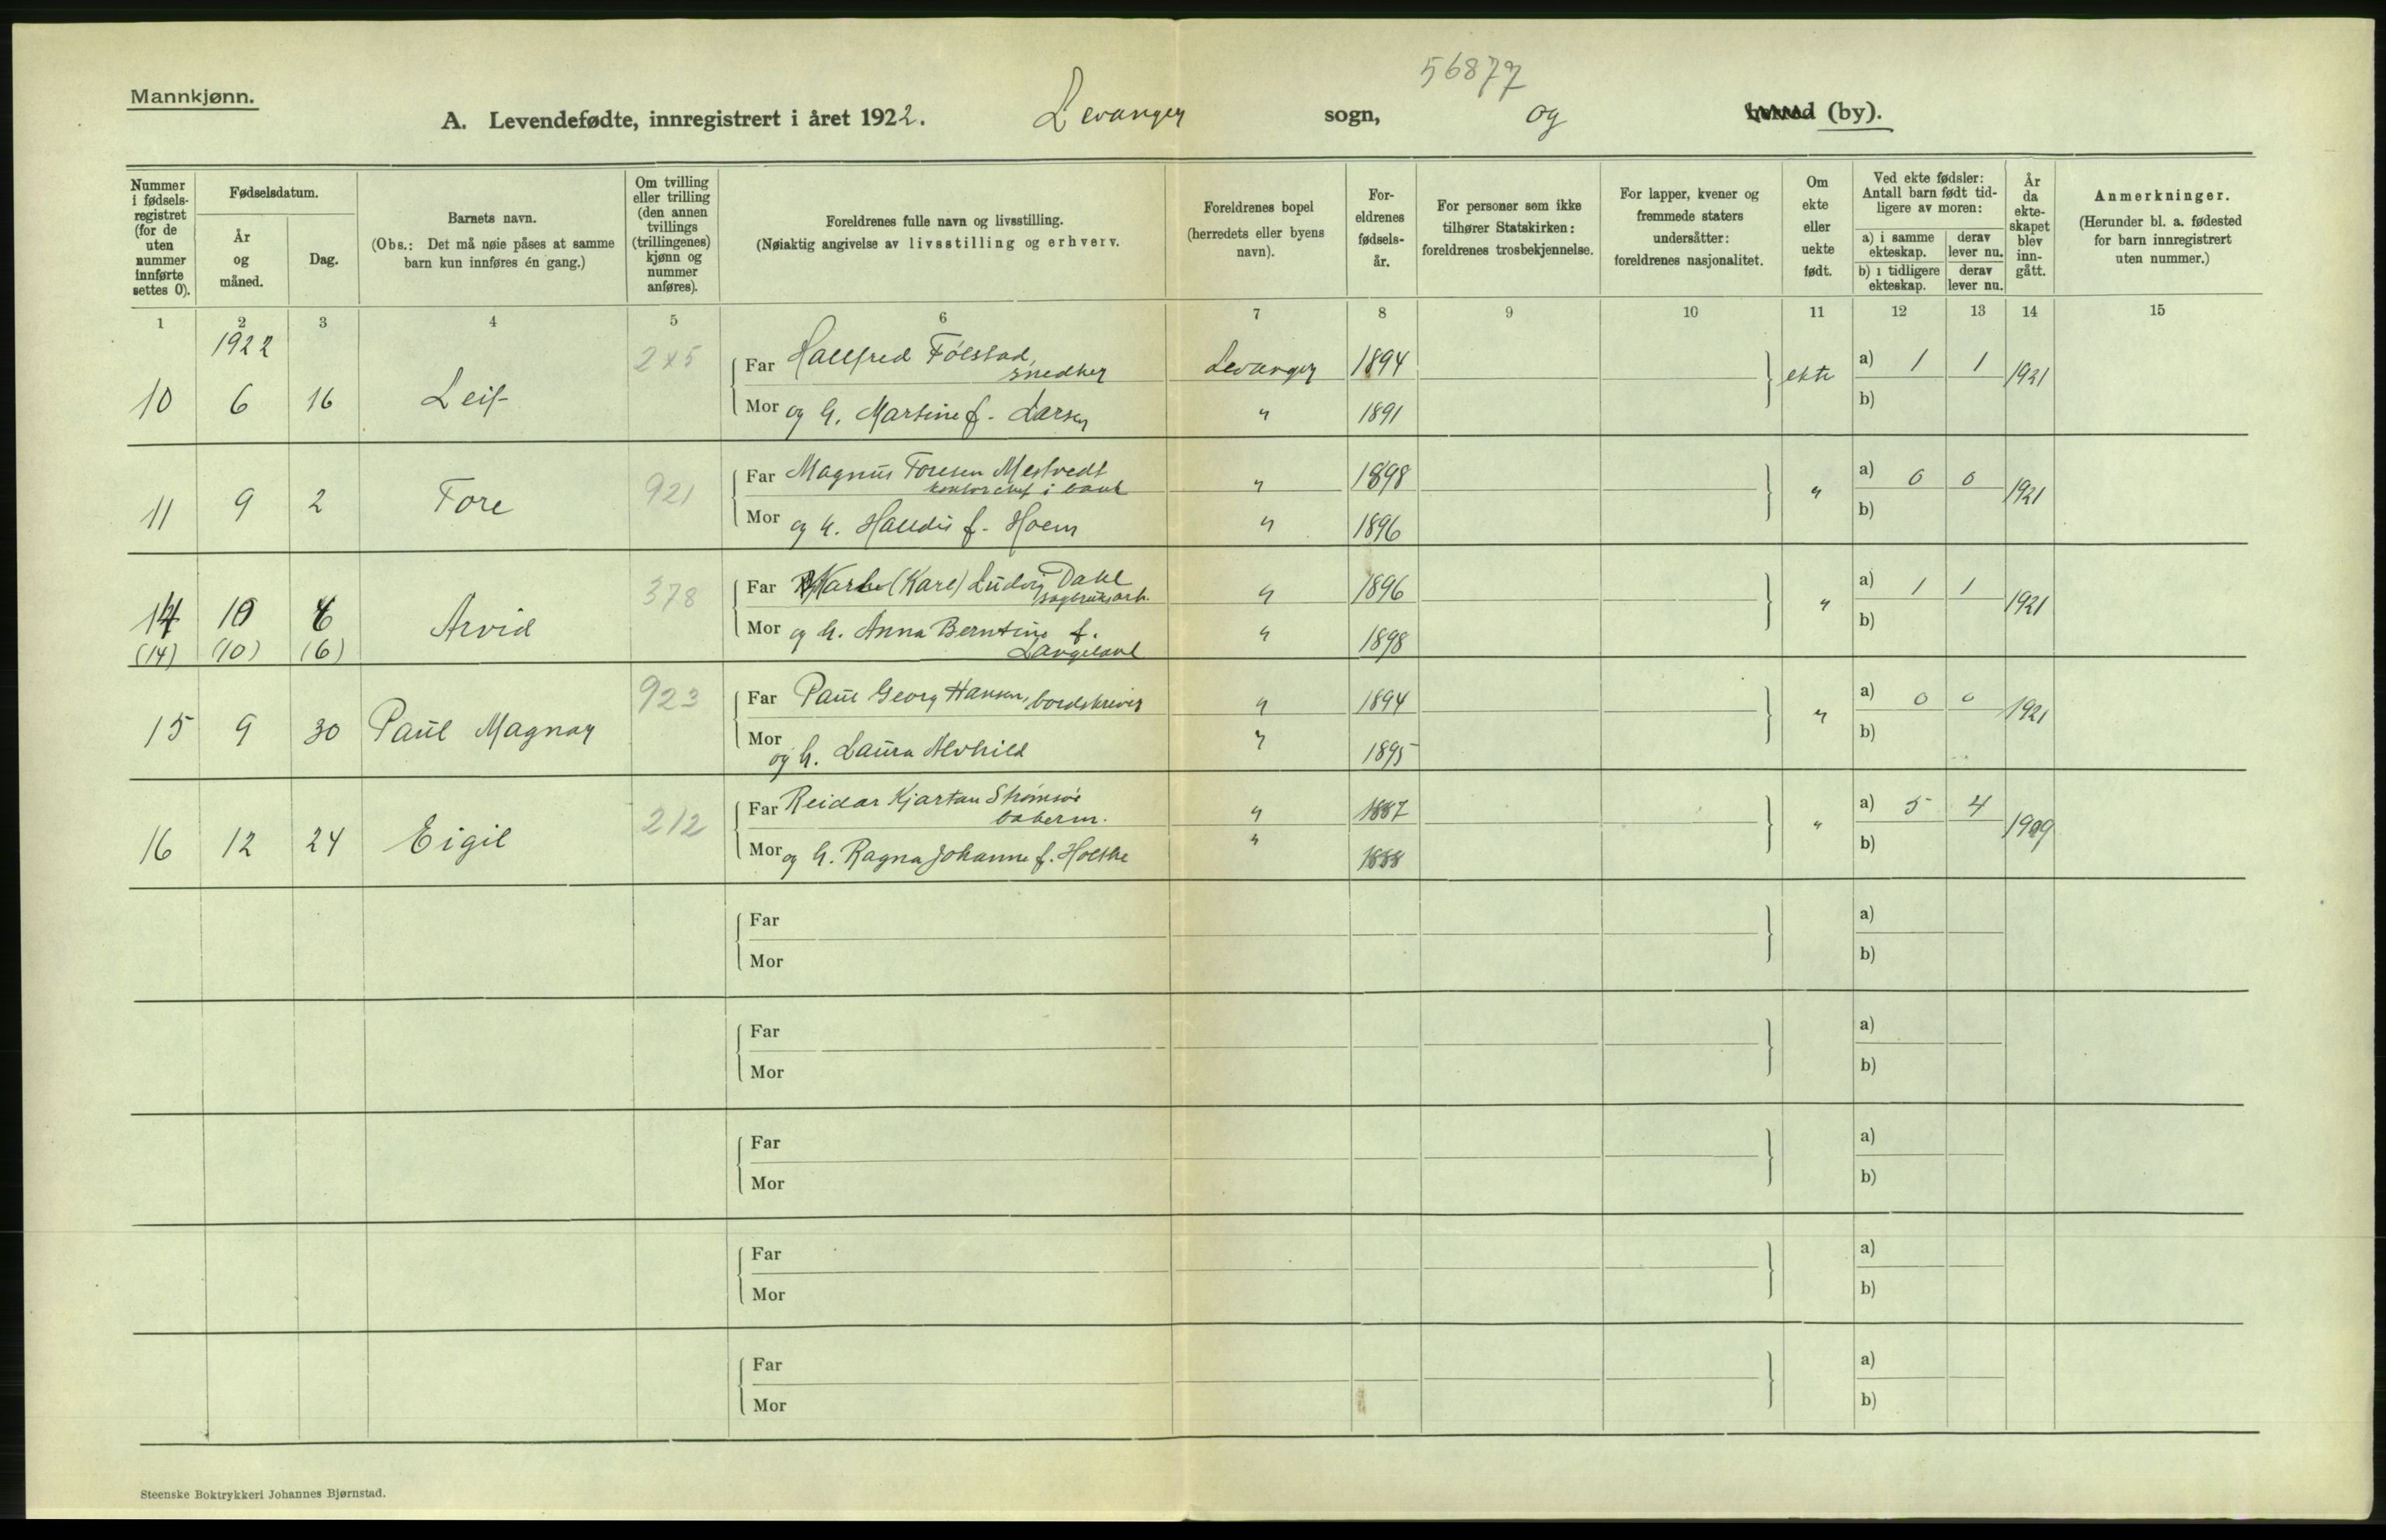 56877
Mannkjønn.
A. Levendefødte, innregistrert i året 1922. Levanger sogn, og herred (by).
Nummer i fødsels-registret (for de uten nummer innførte settes 0).
Fødselsdatum.
År og måned.
Dag.
Barnets navn.
(Obs.: Det må nøie påses at samme barn kun innføres én gang.)
Om tvilling eller trilling (den annen tvillings (trillingenes) kjønn og nummer anføres).
Foreldrenes fulle navn og livsstilling.
(Nøiaktig angivelse av livsstilling og erhverv.
Foreldrenes bopel (herredets eller byens navn).
For-eldrenes fødsels-år.
For personer som ikke tilhører Statskirken: foreldrenes trosbekjennelse.
For lapper, kvener og fremmede staters undersåtter: foreldrenes nasjonalitet.
Om ekte eller uekte født.
Ved ekte fødsler: Antall barn født tid-ligere av moren:
a) i samme ekteskap.
derav lever nu.
b) i tidligere ekteskap.
derav lever nu.
År da ekte-skapet blev inn-gått.
Anmerkninger.
(Herunder bl. a. fødested for barn innregistrert uten nummer.)
1 2 3 4 5 6 7 8 9 10 11 12 13 14 15
1922
10 6 16 Leif 245
Far Hallfred Følstad, snedker Levanger 1894 ekte a) 1 1 1921
Mor og h. Martine f. Larsen " 1891 b)
11 9 2 Tore 921
Far Magnus Toresen Mestvedt kontorchef i bank " 1898 " a) 0 0 1921
Mor og h. Halldis f. Hoem " 1896 b)
14 10 6 Arvid 378
(14) (10) (6)
Far (Kare) Ludvig Dahl sagbruksarb. " 1896 " a) 1 1 1921
Mor og h. Anna Berntine f. Langeland " 1898 b)
15 9 30 Paul Magnar 923
Far Paul Georg Hansen, bordskriver " 1894 " a) 0 0 1921
Mor og h. Laura Alvhild " 1895 b)
16 12 24 Eigil 212
Far Reidar Kjartan Strømsøe bakerm. " 1887 " a) 5 4 1909
Mor og h. Ragna Johanne f. Holske " 1888 b)
Far a)
Mor b)
Far a)
Mor b)
Far a)
Mor b)
Far a)
Mor b)
Far a)
Mor b)
Steenske Boktrykkeri Johannes Bjørnstad.